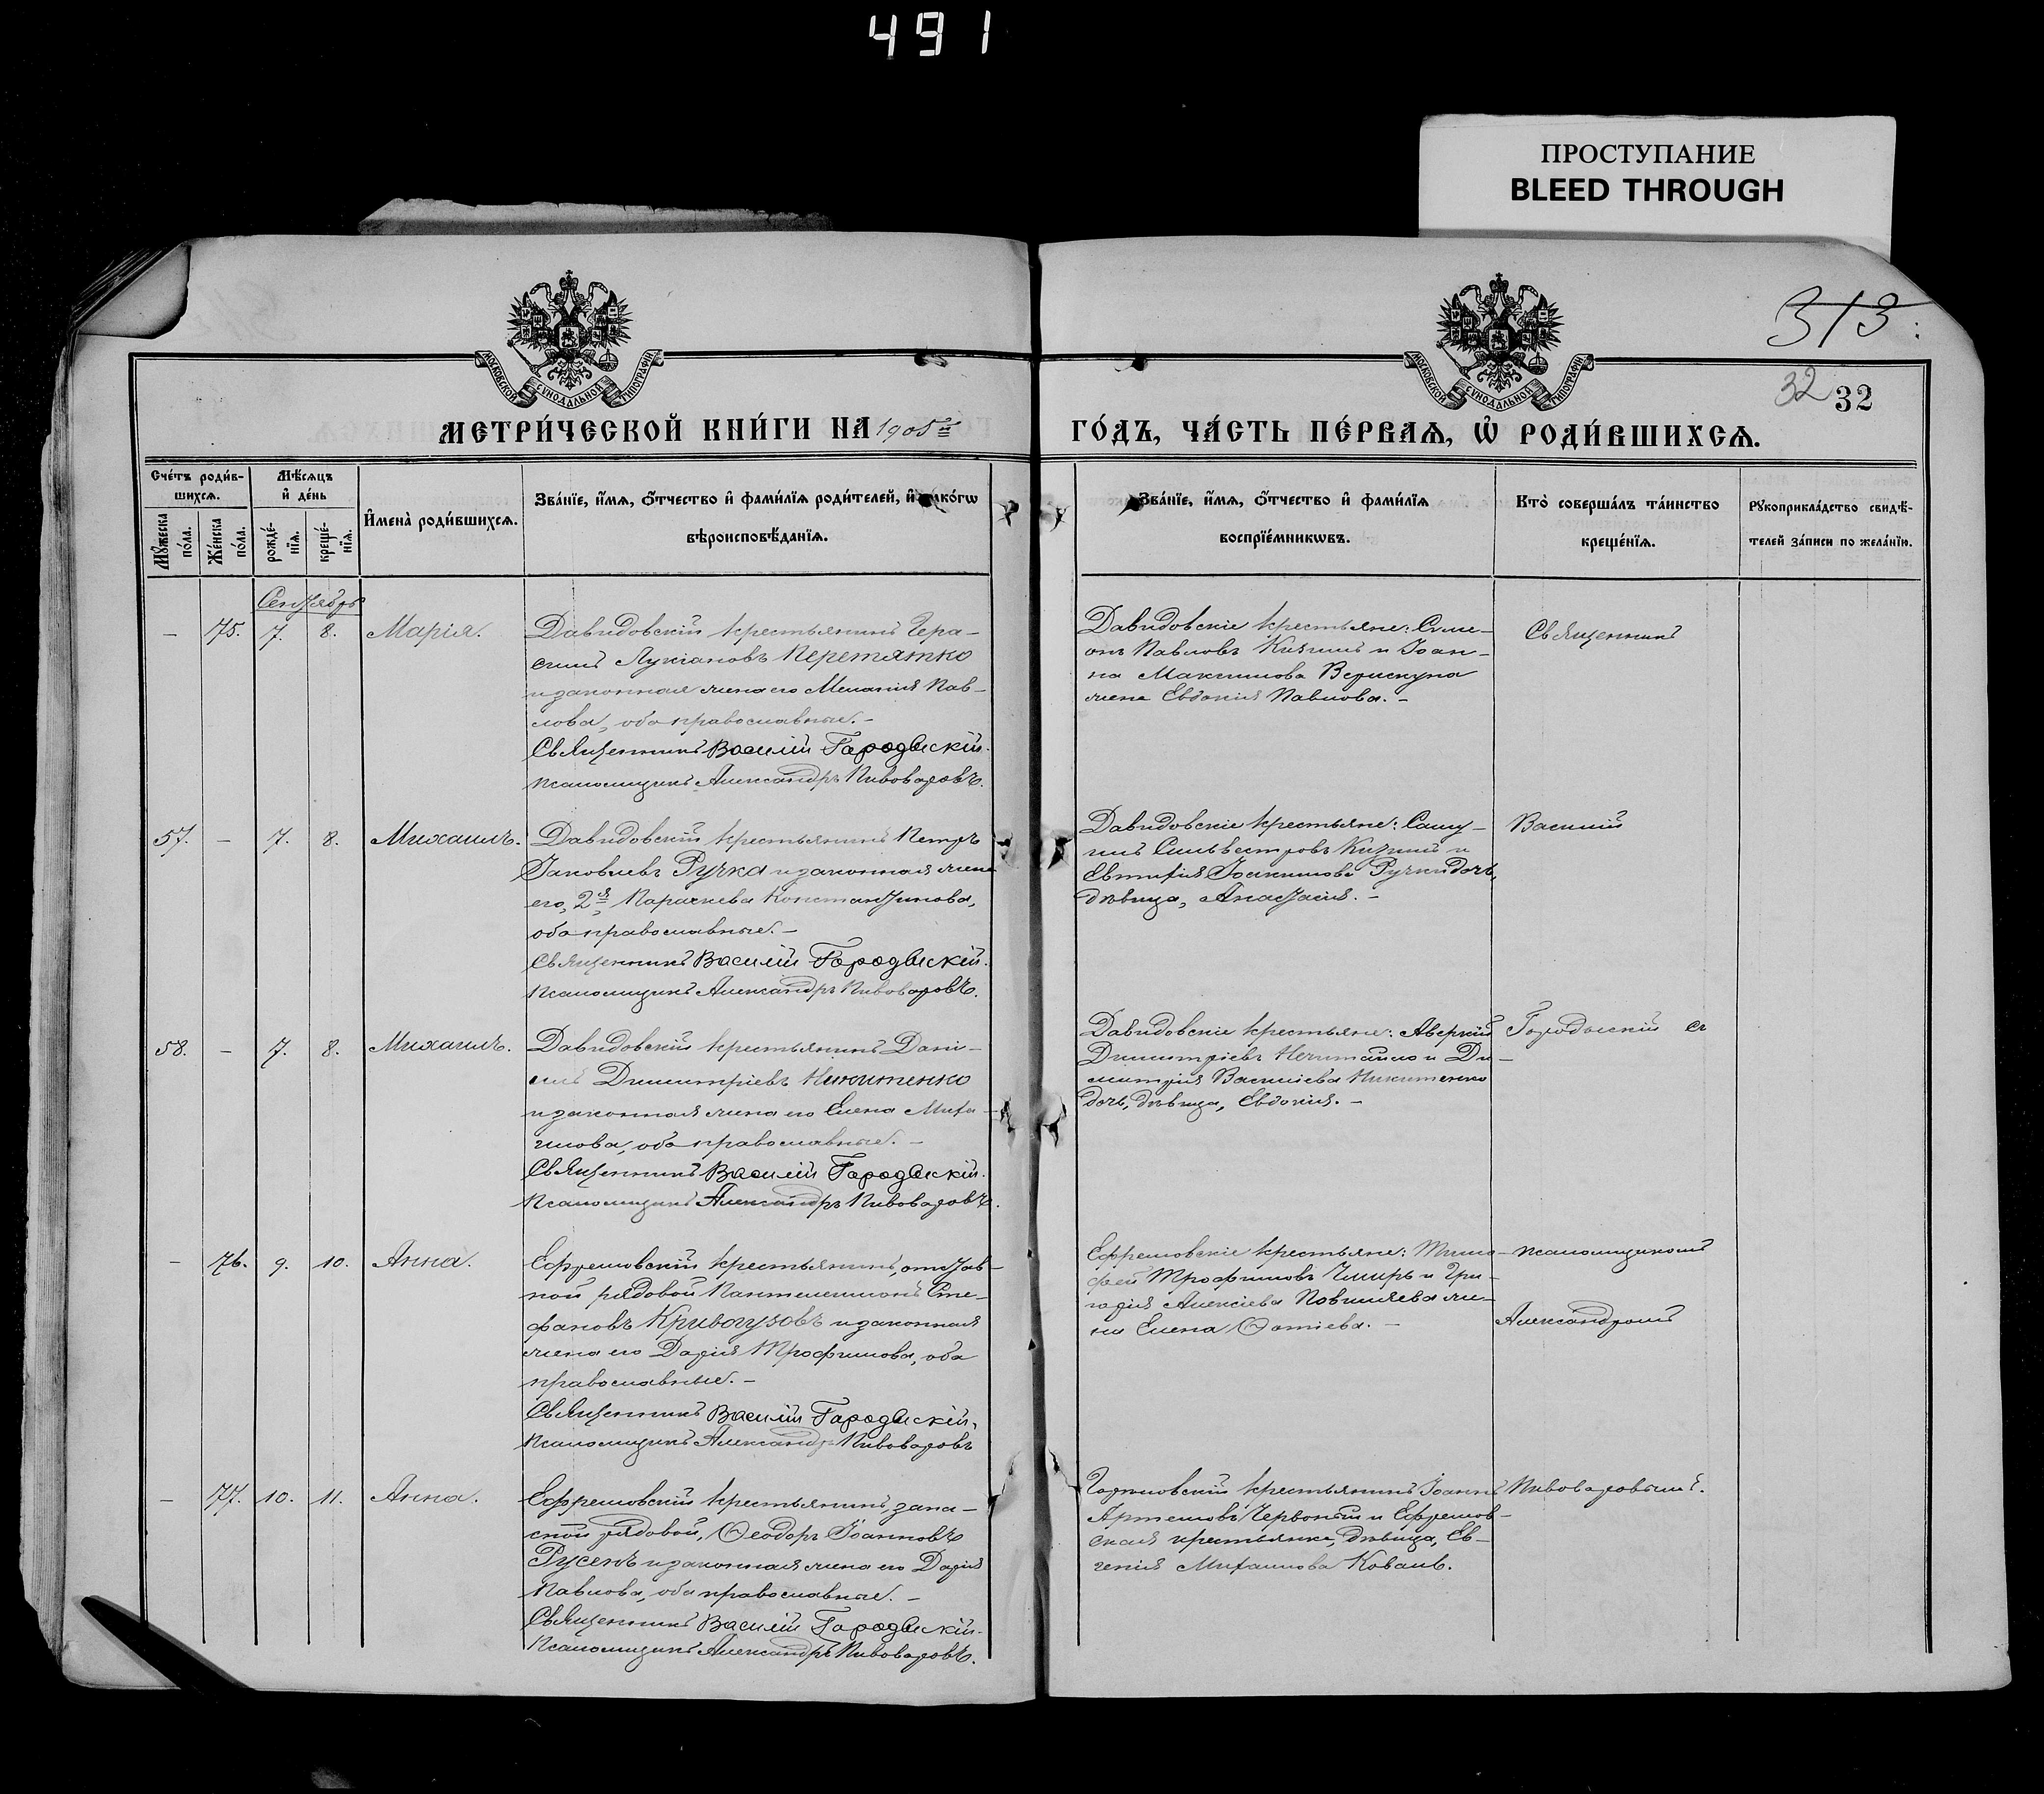 491
ПРОСТУПАНИЕ
BLEED THROUGH
313
32 32
МОСКОВСКОЙ СѴНОДАЛЬНОЙ ТИПОГРАФІИ
МОСКОВСКОЙ СѴНОДАЛЬНОЙ ТИПОГРАФІИ
МЕТРИ́ЧЕСКОЙ КНИ́ГИ НА 1905й
ГО́ДЪ, ЧА́СТЬ ПЕ́РВАѦ, Ѡ РОДИ́ВШИХСѦ.
Сче́тъ роди́в-
шихсѧ.
Мꙋ́жеска по́ла.
Же́нска по́ла.
Мѣ́сѧцъ
и҆ де́нь
рожде́-
нїѧ.
креще́-
нїѧ.
И҆мена̀ роди́вшихсѧ.
Зва́нїе, и҆́мѧ, ѻ҆́тчество и҆ фами́лїѧ роди́телей, и҆ какогѡ
вѣроисповѣ́данїѧ.
Зва́нїе, и҆́мѧ, ѻ҆́тчество и҆ фами́лїѧ
воспрїе́мникѡвъ.
Кто̀ соверша́лъ та́инство
креще́нїѧ.
Рꙋкоприкла́дство свидѣ́-
телей за́писи по жела́нїю.
Сентябрь
— 75. 7. 8. Марія.
Давидовскій крестьянинъ Гера-
симъ Лукіановъ Перетятко
и законная жена его Меланія Пав-
лова, оба православные. —
Священникъ Василій Городыскій.
Псаломщикъ Александръ Пивоваровъ.
Давидовскіе крестьяне: Симе-
онъ Павловъ Кизимъ и Іоан-
на Максимова Верискуна
жена Евдокія Павлова. —
Священникъ
57. — 7. 8. Михаилъ.
Давидовскій крестьянинъ Петръ
Іаковлевъ Ручка и законная жена
его, 2я, Параскева Константинова,
оба православные. —
Священникъ Василій Городыскій.
Псаломщикъ Александръ Пивоваровъ.
Давидовскіе крестьяне: Саму-
илъ Сильвестровъ Кизимъ и
Евтихія Іоакимова Ручки дочь,
дѣвица, Анастасія. —
Василій
58. — 7. 8. Михаилъ.
Давидовскій крестьянинъ Дані-
илъ Димитріевъ Никитенко
и законная жена его Елена Миха-
илова, оба православные. —
Священникъ Василій Городыскій.
Псаломщикъ Александръ Пивоваровъ.
Давидовскіе крестьяне: Аверкій
Димитріевъ Нечитайло и Ди-
митрія Василіева Никитенко
дочь, дѣвица, Евдокія. —
Городыскій съ
— 76. 9. 10. Анна.
Ефремовскій крестьянинъ, отстав-
ной рядовой Пантелеимонъ Сте-
фановъ Кривогузовъ и законная
жена его Дарія Трофимова, оба
православные. —
Священникъ Василій Городыскій.
Псаломщикъ Александръ Пивоваровъ
Ефремовскіе крестьяне: Тимо-
фей Трофимовъ Чмиръ и Гри-
горія Алексіева же-
на Елена Фотіева. —
псаломщикомъ
Александромъ
— 77. 10. 11. Анна.
Ефремовскій крестьянинъ, запа-
сной рядовой, Ѳеодоръ Іоанновъ
Русенъ и законная жена его Дарія
Павлова, оба православные. —
Священникъ Василій Городыскій.
Псаломщикъ Александръ Пивоваровъ.
крестьянинъ Іоаннъ
Артемовъ Червоный и Ефремов-
ская крестьянка, дѣвица, Ев-
генія Михаилова Коваль.
Пивоваровымъ.